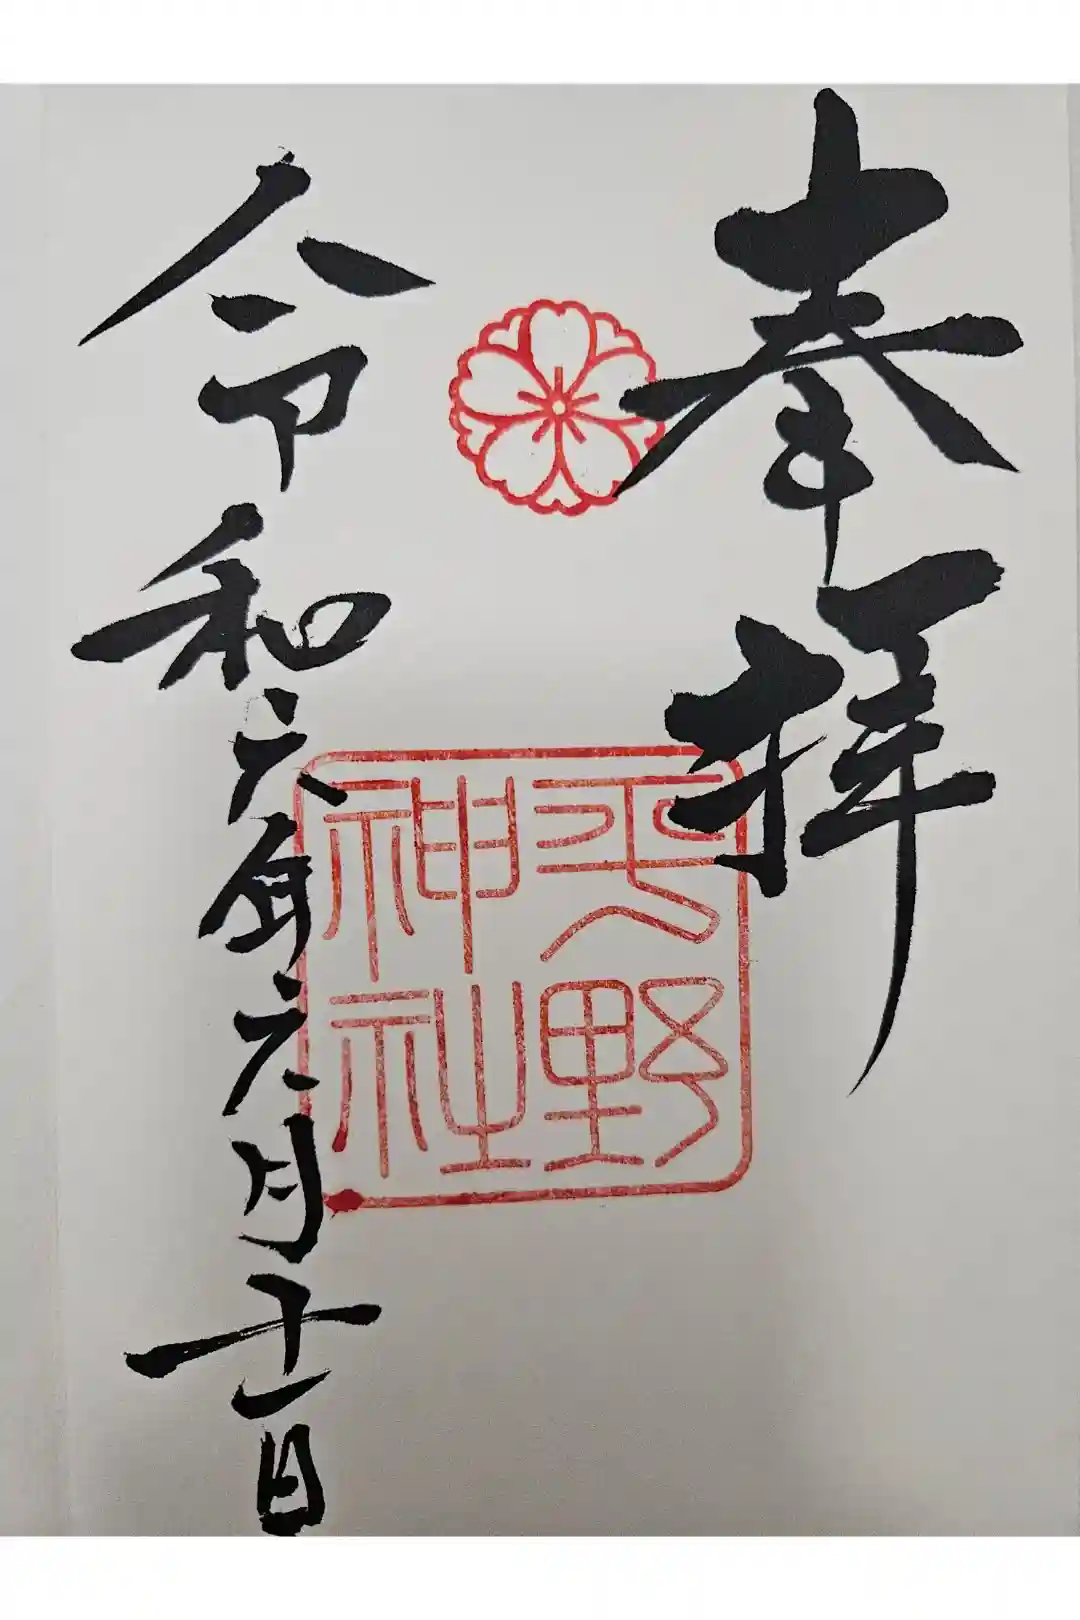 奉拝
平野神社
令和六年六月十一日